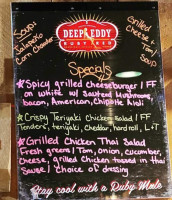 Soup:
Salmon
Corn Chowder
DEEP EDDY
RUBY RED
Grilled
Cheese
Tom/
Soup
Specials
★Spicy grilled cheeseburger | FF
on white w/ Sauteed Mushroom,
bacon, American, Chipotle Aioli
★Crispy Teriyaki Chicken Salad | FF
Tenders, teriyaki, cheddar, hard roll, L+T
★Grilled Chicken Thai Salad
Fresh greens / Tom, onion, cucumber,
Cheese, grilled chicken tossed in thai
Sauce / Choice of dressing
Stay cool with a Ruby Mule